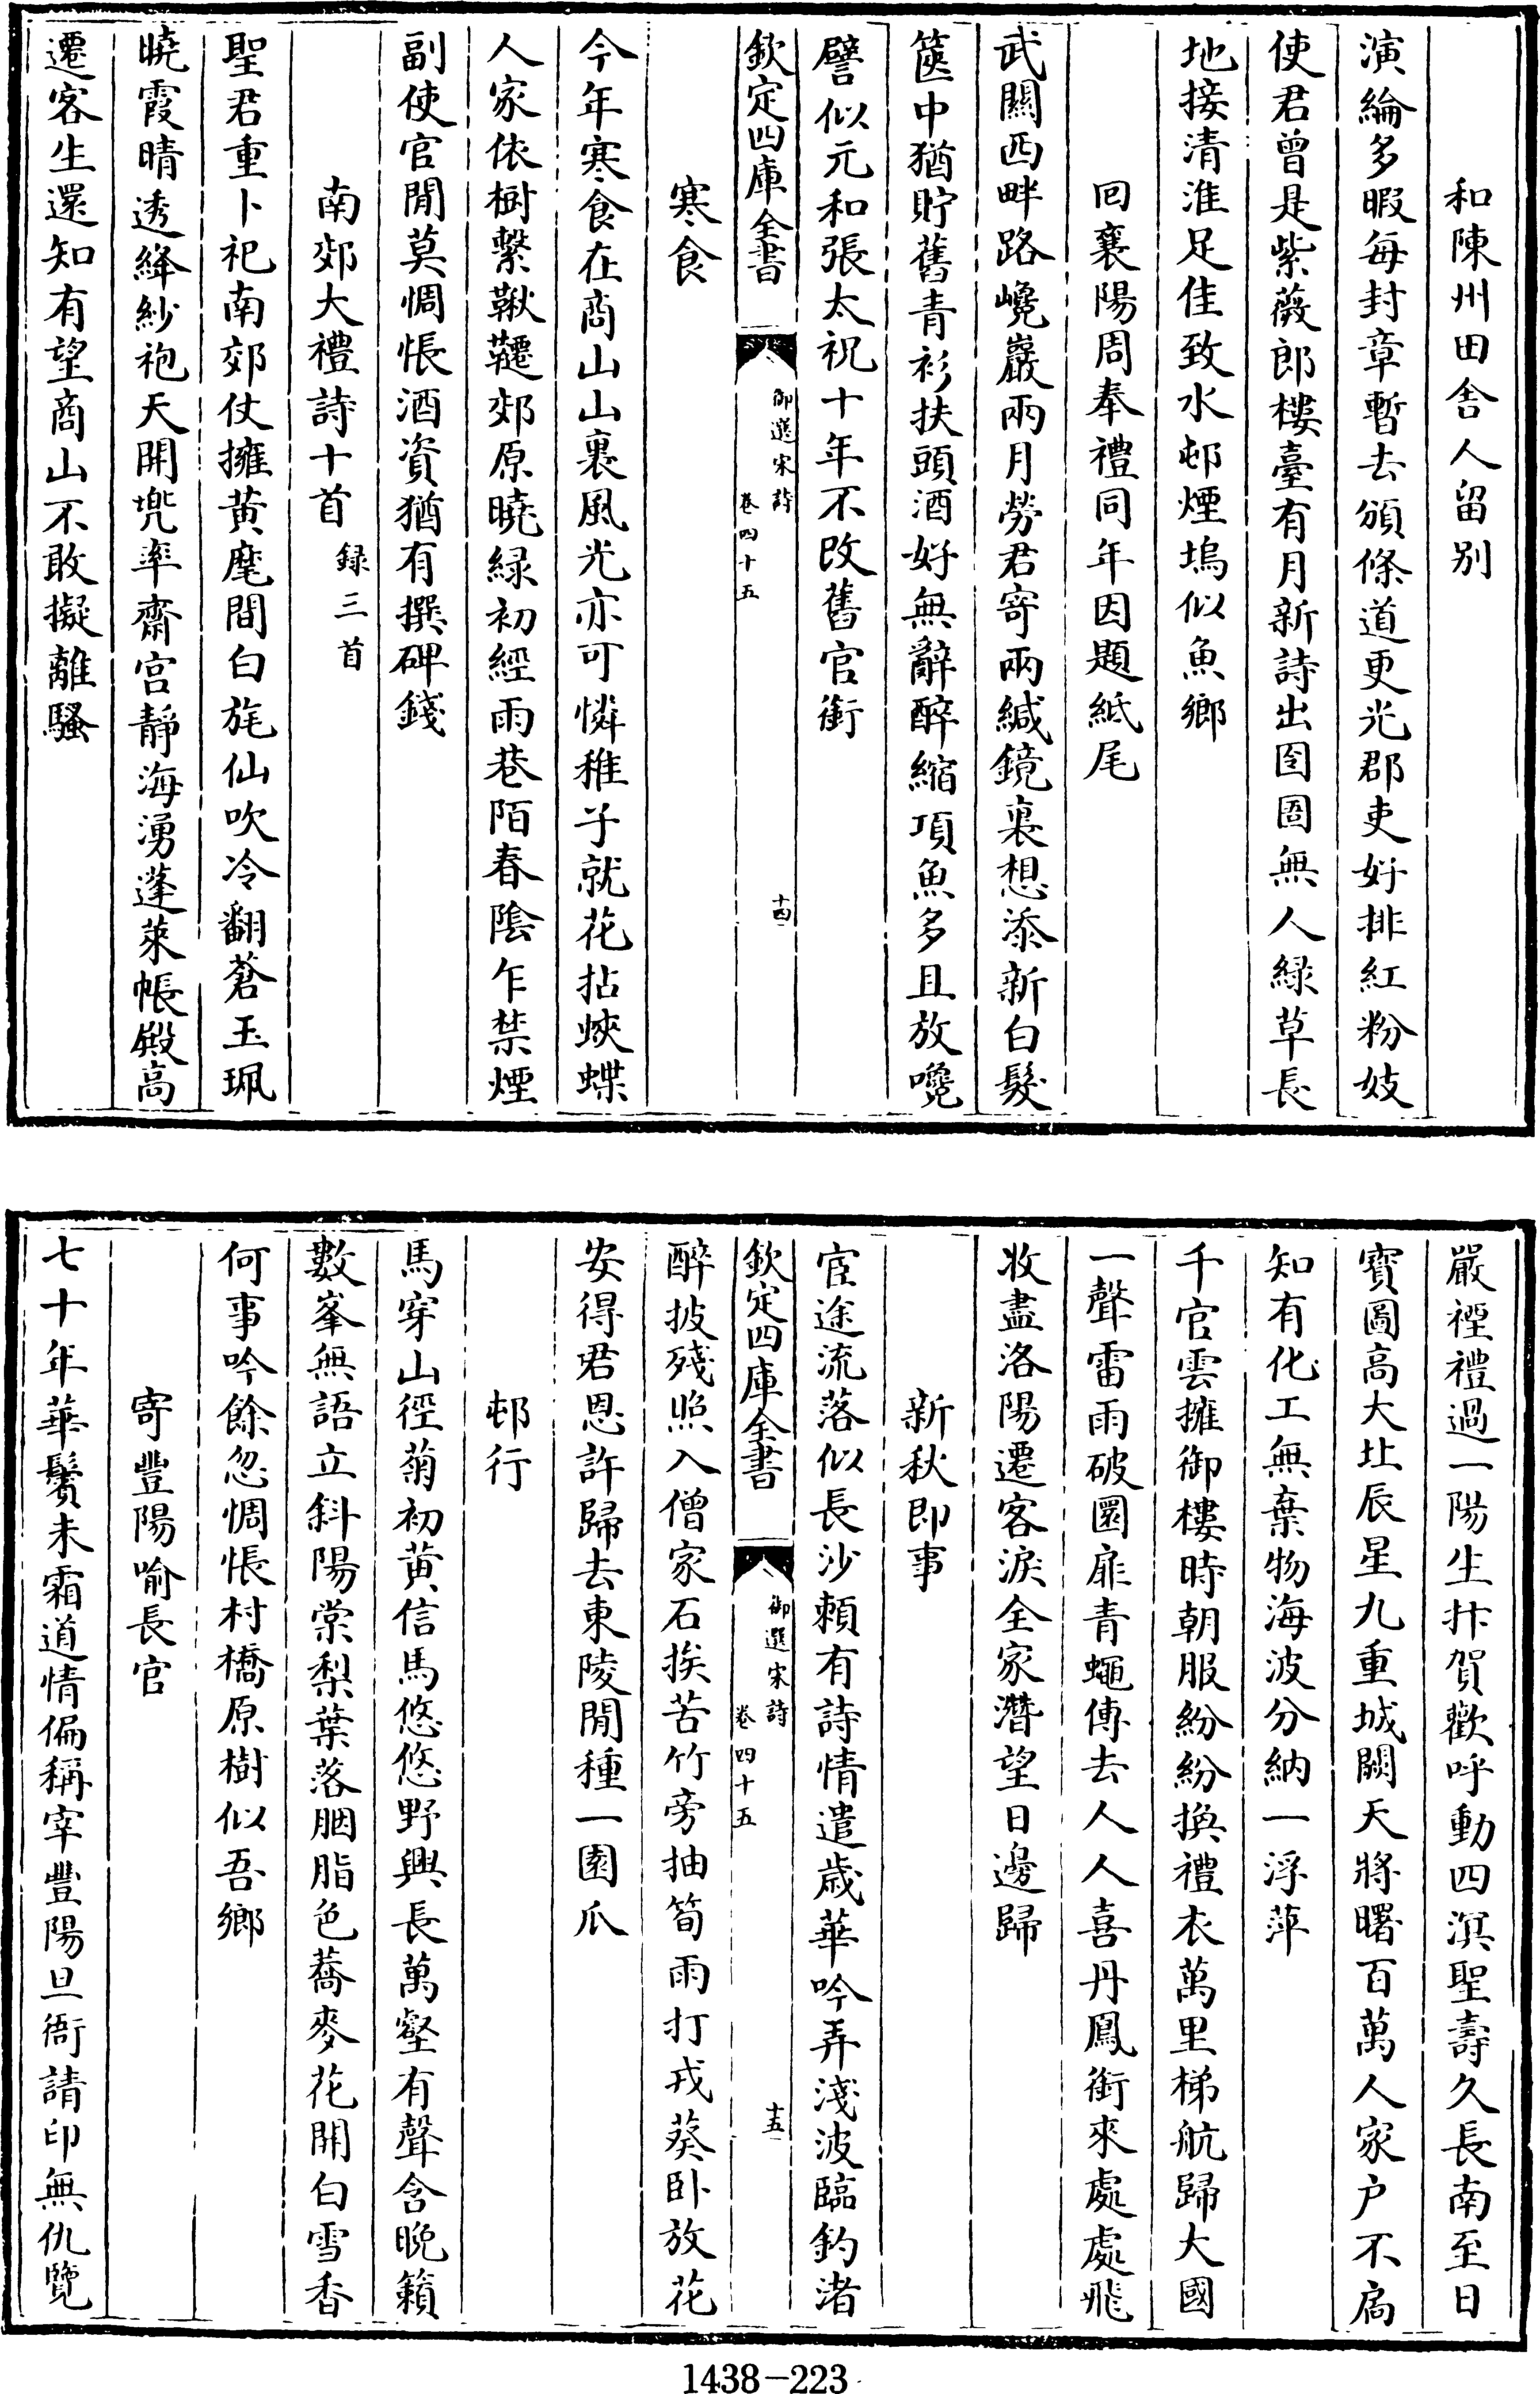 和陳州田舍人留別
演綸多暇每封章暫去頒條道更光郡吏好排紅粉妓
使君曾是紫薇郎樓臺有月新詩出囹圄無人緑草長
地接清淮足佳致水邨煙塢似魚鄉
回襄陽周奉禮同年因題紙尾
武闗西畔路巉巖兩月勞君寄兩緘鏡裏想添新白髮
篋中猶貯舊青衫扶頭酒好無辭醉縮項魚多且放嚵
譬似元和張太祝十年不改舊官銜
欽定四庫全書
御選宋詩
卷四十五
十四
寒食
今年寒食在商山山裏風光亦可憐稚子就花拈蛺蝶
人家依樹繫鞦韆郊原曉緑初經雨巷陌春陰乍禁煙
副使官閒莫惆悵酒資猶有撰碑錢
南郊大禮詩十首 録三首
聖君重卜祀南郊仗擁黄麾間白旄仙吹冷翻蒼玉珮
曉霞晴透絳紗袍天開兜率齋宫靜海湧蓬萊帳殿高
遷客生還知有望商山不敢擬離騷
嚴禋禮過一陽生抃賀歡呼動四溟聖壽久長南至日
寳圖高大北辰星九重城闕天將曙百萬人家户不扃
知有化工無棄物海波分納一浮萍
千官雲擁御樓時朝服紛紛換禮衣萬里梯航歸大國
一聲雷雨破圜扉青蠅傳去人人喜丹鳳銜來處處飛
收盡洛陽遷客淚全家潛望日邊歸
新秋即事
宦途流落似長沙頼有詩情遣歲華吟弄淺波臨釣渚
欽定四庫全書
御選宋詩
卷四十五
十五
醉披殘照入僧家石挨苦竹旁抽筍雨打戎葵卧放花
安得君恩許歸去東陵閒種一園瓜
邨行
馬穿山徑菊初黄信馬悠悠野興長萬壑有聲含晚籟
數峯無語立斜陽棠梨葉落胭脂色蕎麥花開白雪香
何事吟餘忽惆悵村橋原樹似吾鄉
寄豐陽喻長官
七十年華鬢未霜道情偏稱宰豐陽旦衙請印無仇覽
1438-223